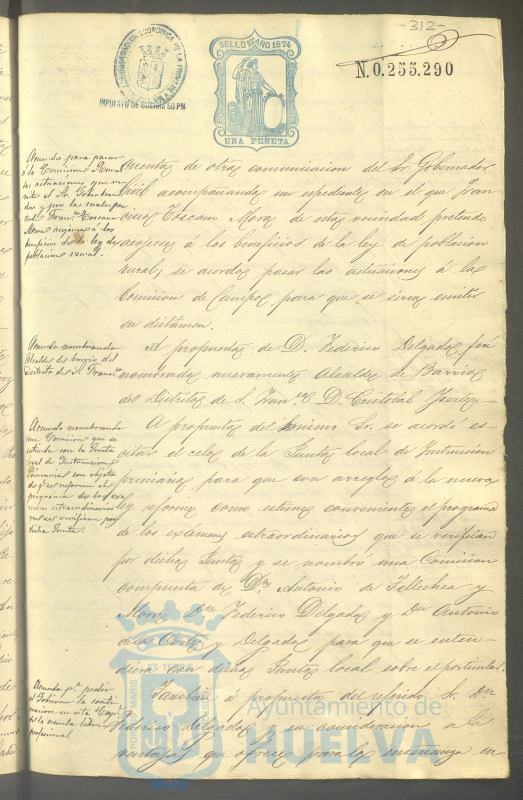 -312-
SELLO 10º AÑO 1874
UNA PESETA
IMPUESTO DE GUERRA 50 PM
N.0.255.290
Acuerdo para pasar
á la Comision Rural
las actuaciones que re-
mite el Sr. Gobernador
y por las cuales pre-
tende Franco. Toscano
Mora acojerse á los
beneficios de la ley de
poblacion rural.
cuentas de otra comunicacion del Sr. Gobernador
Civil acompañando un espediente en el que Fran-
cisco Toscano Mora de esta vecindad pretende
acojerse á los beneficios de la ley de poblacion
rural; se acordó pasar las actuaciones á la
Comision de Campos para que se sirva emitir
su dictámen.
Acuerdo nombrando
Alcalde de barrio del
Distrito de S. Franco.
A propuesta de D. Federico Delgado, fué
nombrado nuevamente Alcalde de Barrio
del Distrito de S. Franco. D. Cristobal
Acuerdo nombrando
una Comision que se
entienda con la Junta
local de Instruccion
Primaria con objeto
de que se reforme el
programa de los exá-
menes estraordinarios
que se verifican por
dicha Junta.
A propuesta del mismo Sr. se acordó es-
citar el celo de la Junta local de Instruccion
primaria, para que con arreglo á la nueva
ley reforme como estime conveniente el programa
de los examenes estraordinarios que se verifican
por dicha Junta y se nombró una Comision
compuesta de Dn. Antonio de Tellechea y
Mora, Dn. Federico Delgado y Dn. Antonio
de la Corte y Delgado para que se enten-
diera con dicha Junta local sobre el particular.
Acuerdo pa. pedir
al Gobierno la conti-
nuacion en esta Capi-
tal de la escuela libre
profesional
Tambien á propuesta del referido Sr. Dn.
Federico Delgado y en consideracion á las
ventajas que ofrece para la enseñanza en
Ayuntamiento de
HUELVA